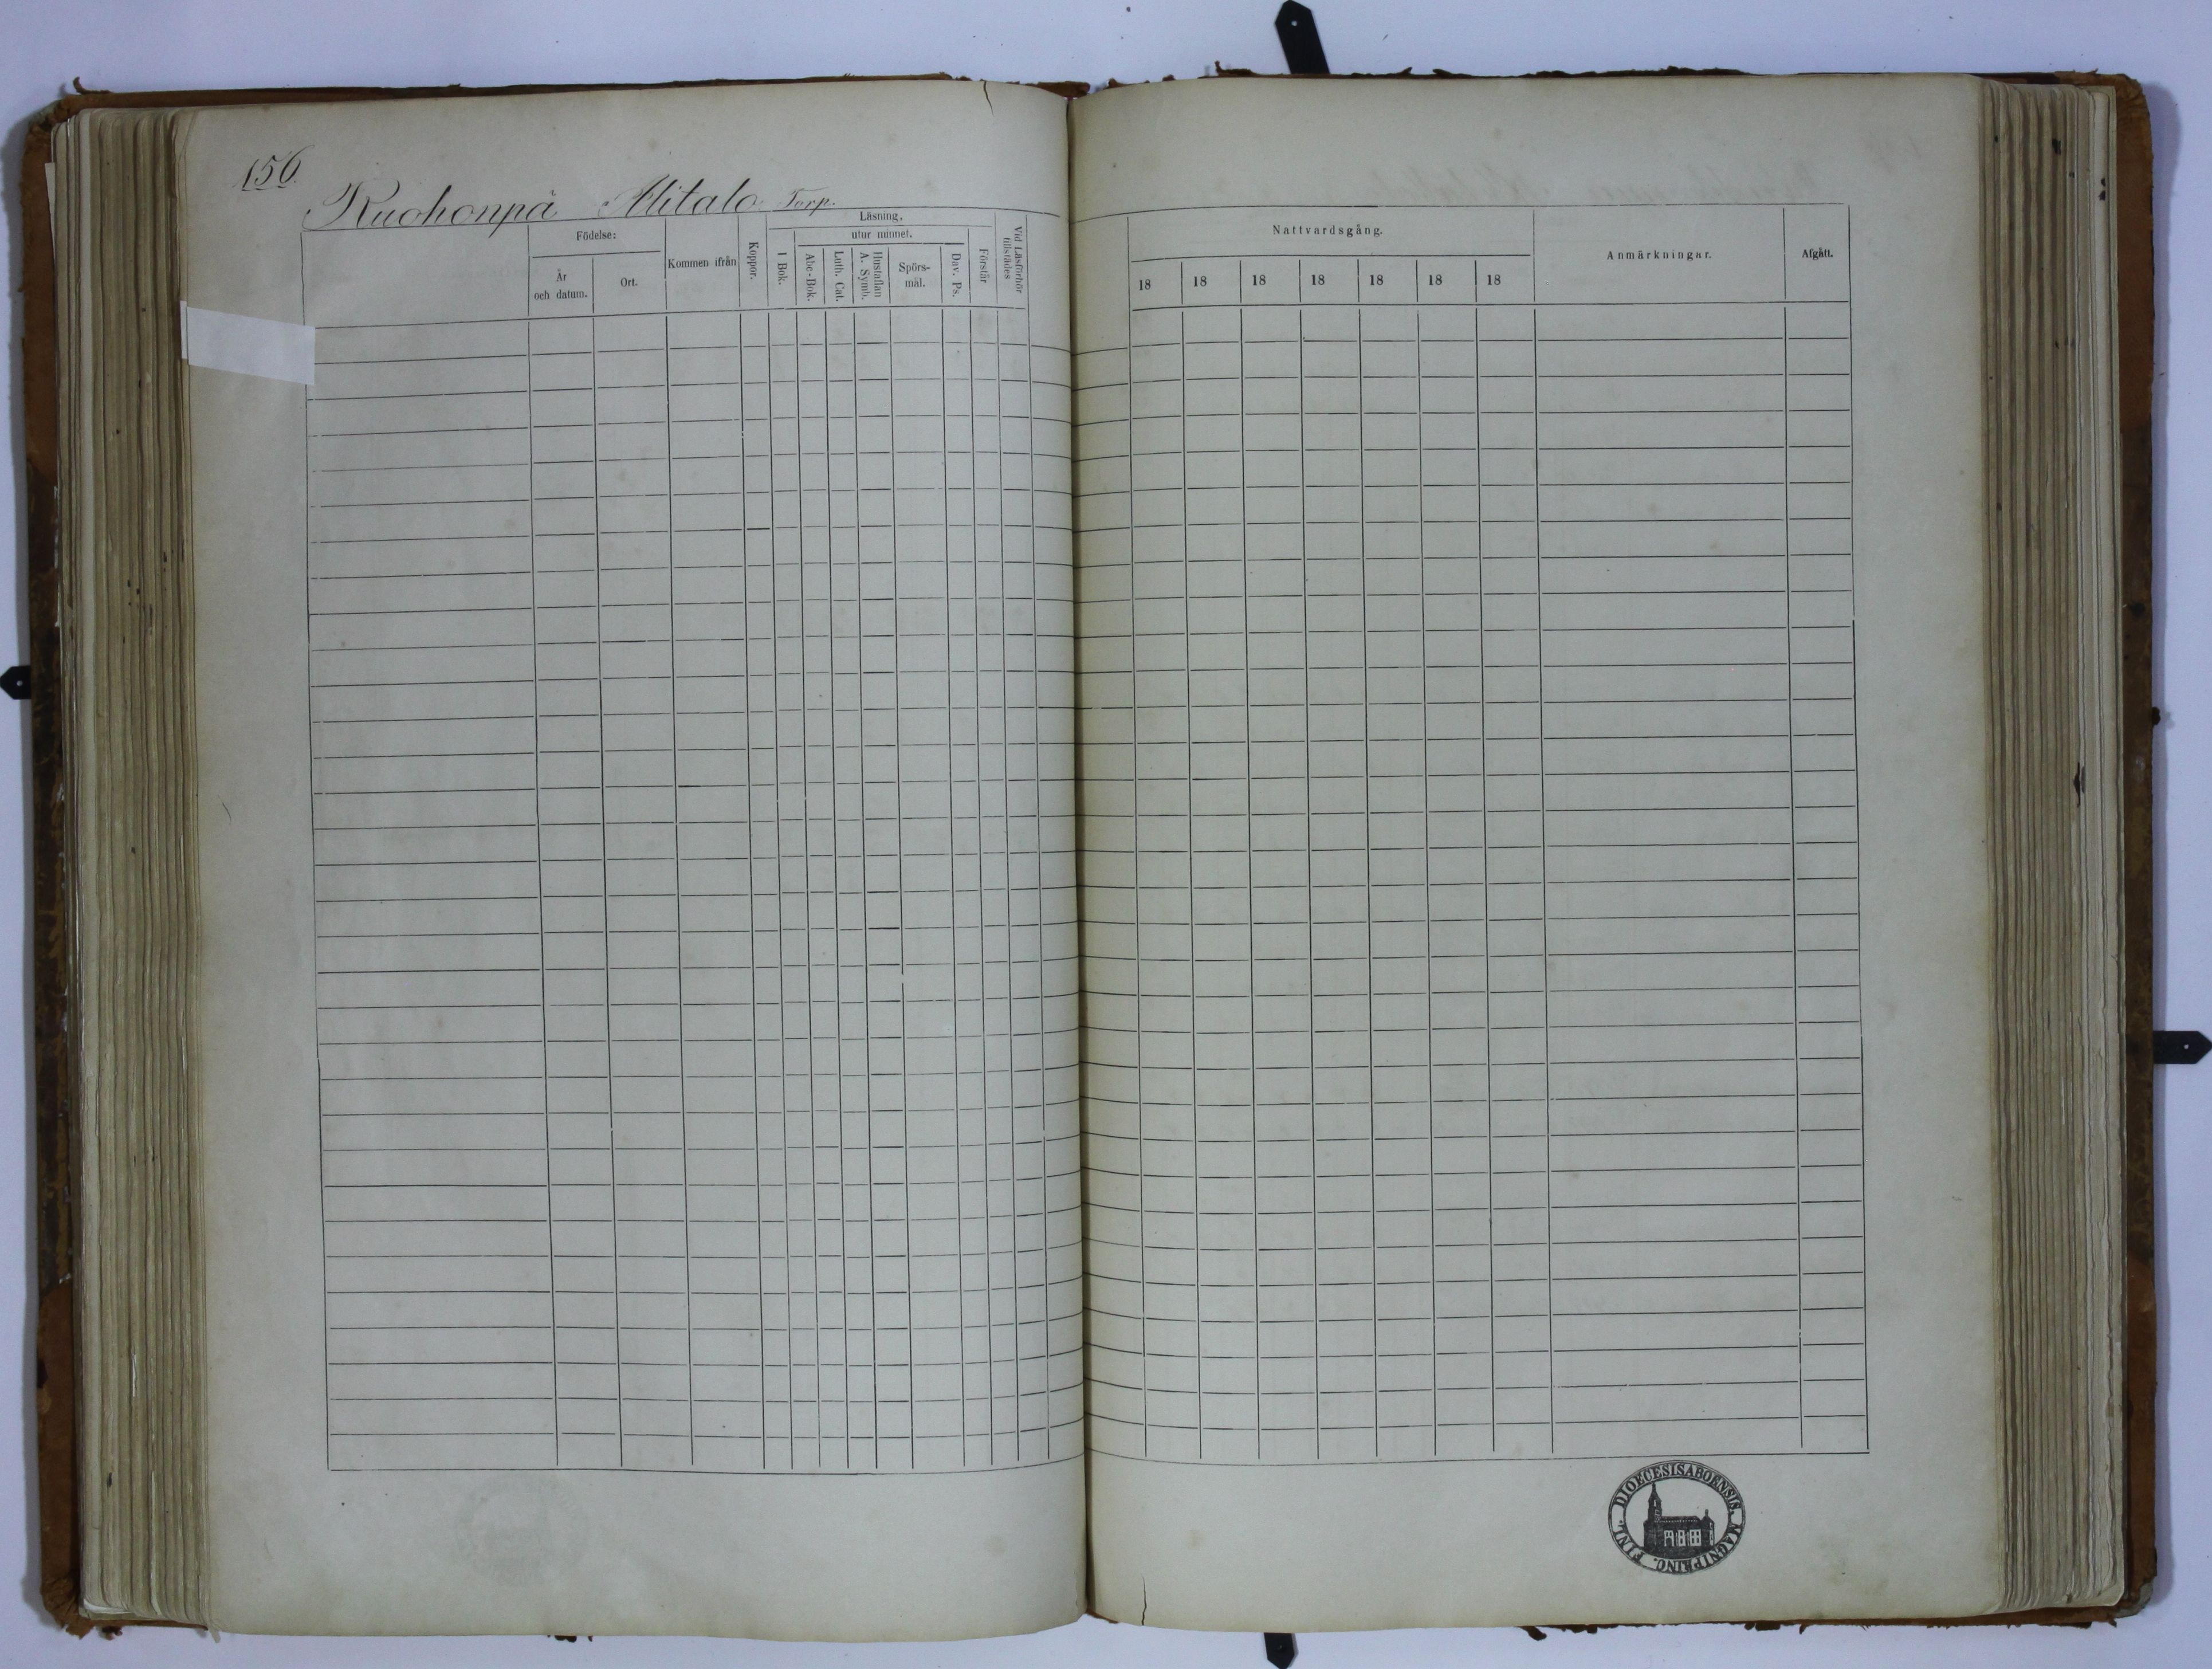 156.
Ruohonpä Alitalo Torp.
Födelse:
År
och datum.
Ort.
Kommen ifrån
Koppor.
Läsning,
I Bok.
utur minnet.
Abc-Bok.
Luth. Cat.
Hustaflan
A. Symb.
Spörs-
mål.
Dav. Ps.
Förstår
Vid Läsförhör
tillstädes
Nattvardsgång.
18 18 18 18 18 18 18
Anmärkningar.
Afgått.
DIOECESIS ABOENSIS. MAGNI PRINC. FINL.